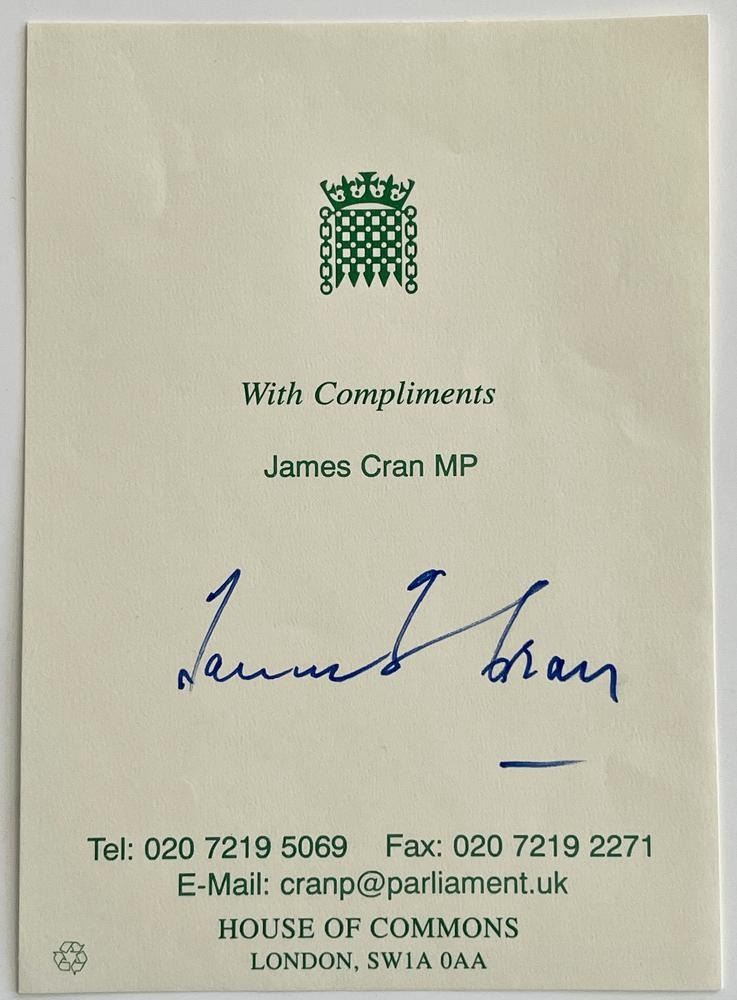 With Compliments
James Cran MP
James Cran
Tel: 020 7219 5069 Fax: 020 7219 2271
E-Mail: cranp@parliament.uk
HOUSE OF COMMONS
LONDON, SW1A 0AA